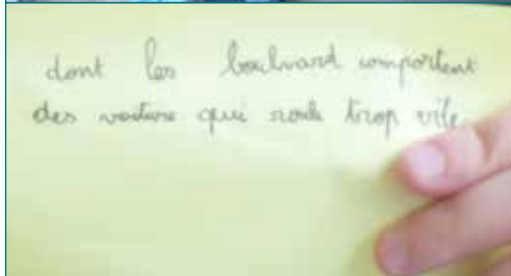 dont les boulvard comportent
des voiture qui roule trop vite